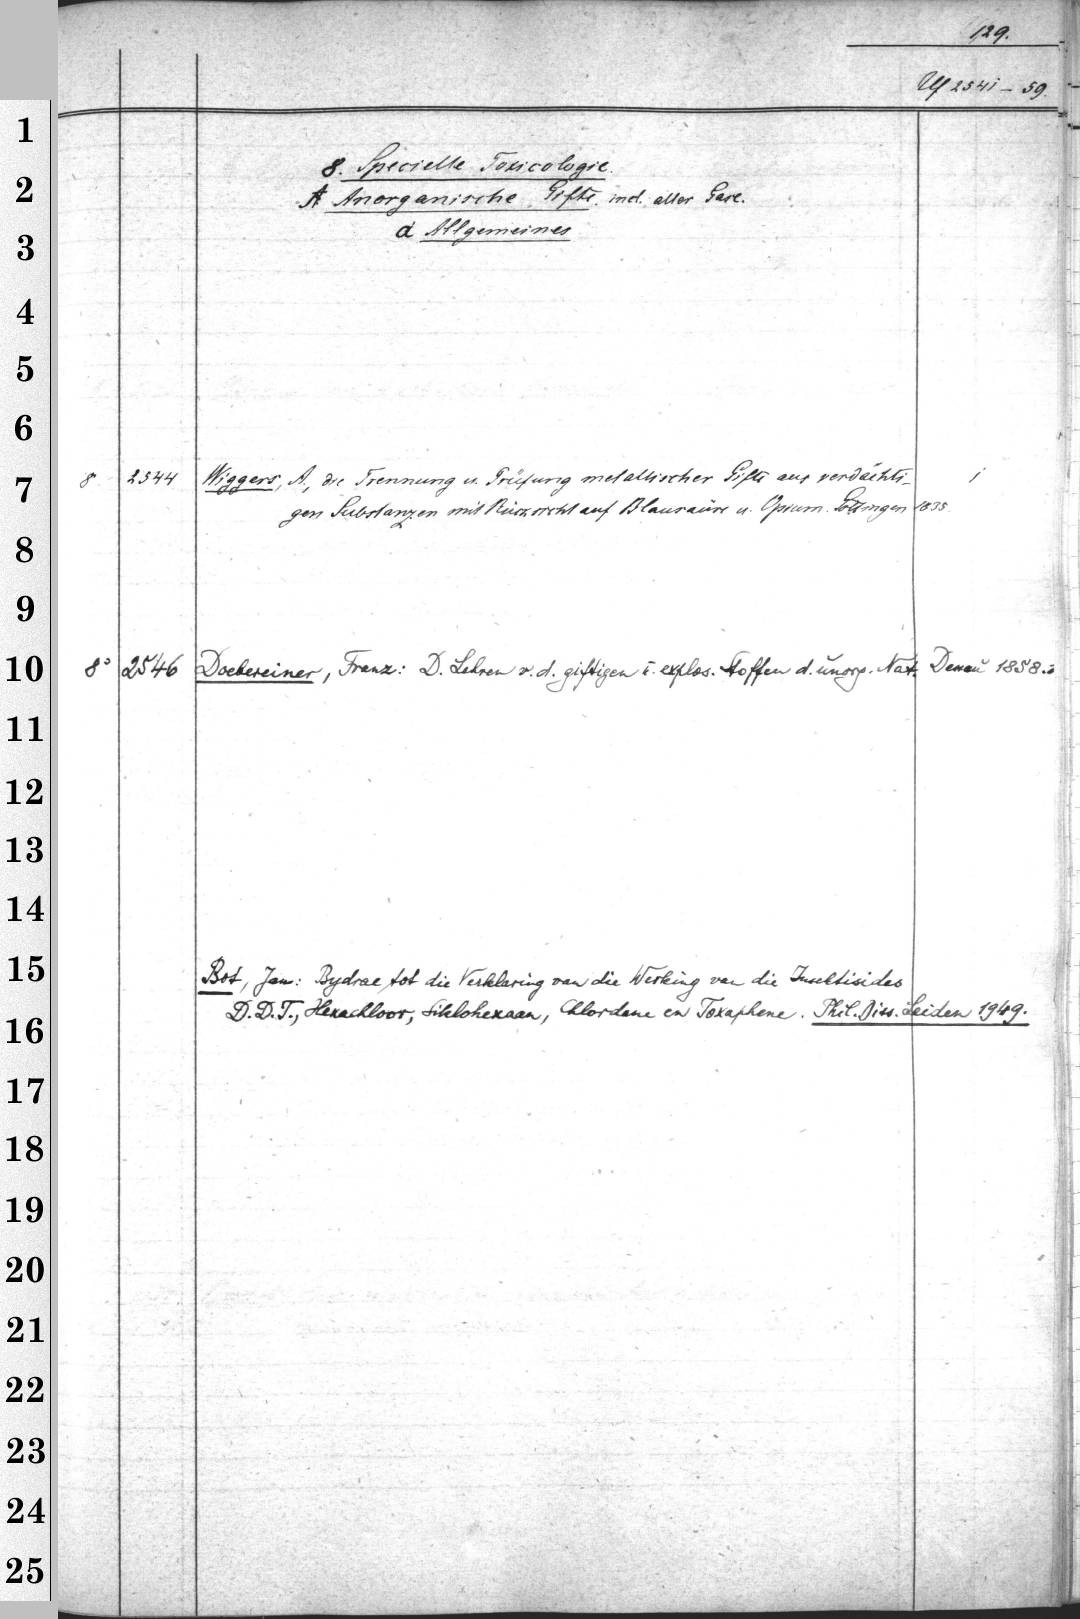 129.
Uf 2541 - 59.
1
8. Specielle Toxicologie.
2
A Anorganische Gifte. incl. aller Gase.
a Allgemeines
3
4
5
6
7
8 2544 Wiggers, A., die Trennung u. Prüfung metallischer Gifte aus verdächti- 1
gen Substanzen mit Rücksicht auf Blausäure u. Opium. Göttingen 1835.
8
9
10
8° 2546 Doebereiner, Franz: D. Lehren v. d. giftigen u. explos. Stoffen d. unorg. Nat. Dessau 1858.
11
12
13
14
15
Bot, Jan: Bydrae tot die Verklaring van die Werking van die Insektisides
16
D.D.T., Hexachloor, Siklohexaan, Chlordane en Toxaphene. Phil. Diss. Leiden 1949.
17
18
19
20
21
22
23
24
25